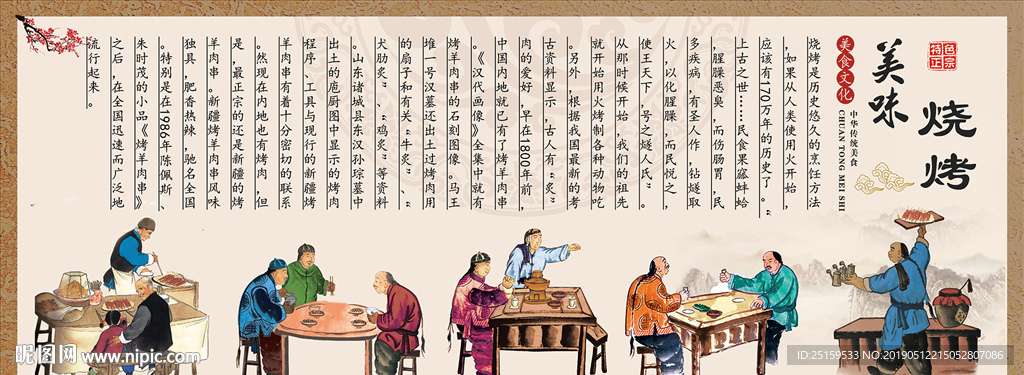 特色
正宗
美味
烧烤
美食文化
中华传统美食
CHUAN TONG MEI SHI
烧烤是历史悠久的烹饪方法
，如果从人类使用火开始，
应该有170万年的历史了。“
上古之世……民食果窳蚌蛤
，腥臊恶臭，而伤肠胃，民
多疾病，有圣人作，钻燧取
火，以化腥臊，而民悦之，
使王天下，号之燧人氏”。
从那时候开始，我们的祖先
就开始用火烤制各种动物吃
。另外，根据我国最新的考
古资料显示，古人有“炙”
肉的爱好，早在1800年前，
中国内地就已有了烤羊肉串
。《汉代画像》全集中就有
烤羊肉串的石刻图像。马王
堆一号汉墓还出土过烤肉用
的扇子和有关“牛炙”、“
犬肋炙”、“鸡炙”等资料
。山东诸城县东汉孙琮墓中
出土的庖厨图中显示的烤肉
程序、工具与现行的新疆烤
羊肉串有着十分密切的联系
。然现在内地也有烤肉，但
是，最正宗的还是新疆的烤
羊肉串。新疆烤羊肉串风味
独具，肥香热辣，驰名全国
。特别是在1986年陈佩斯、
朱时茂的小品《烤羊肉串》
之后，在全国迅速而广泛地
流行起来。
昵图网 www.nipic.com
ID:25159533 NO:20190512215052807086